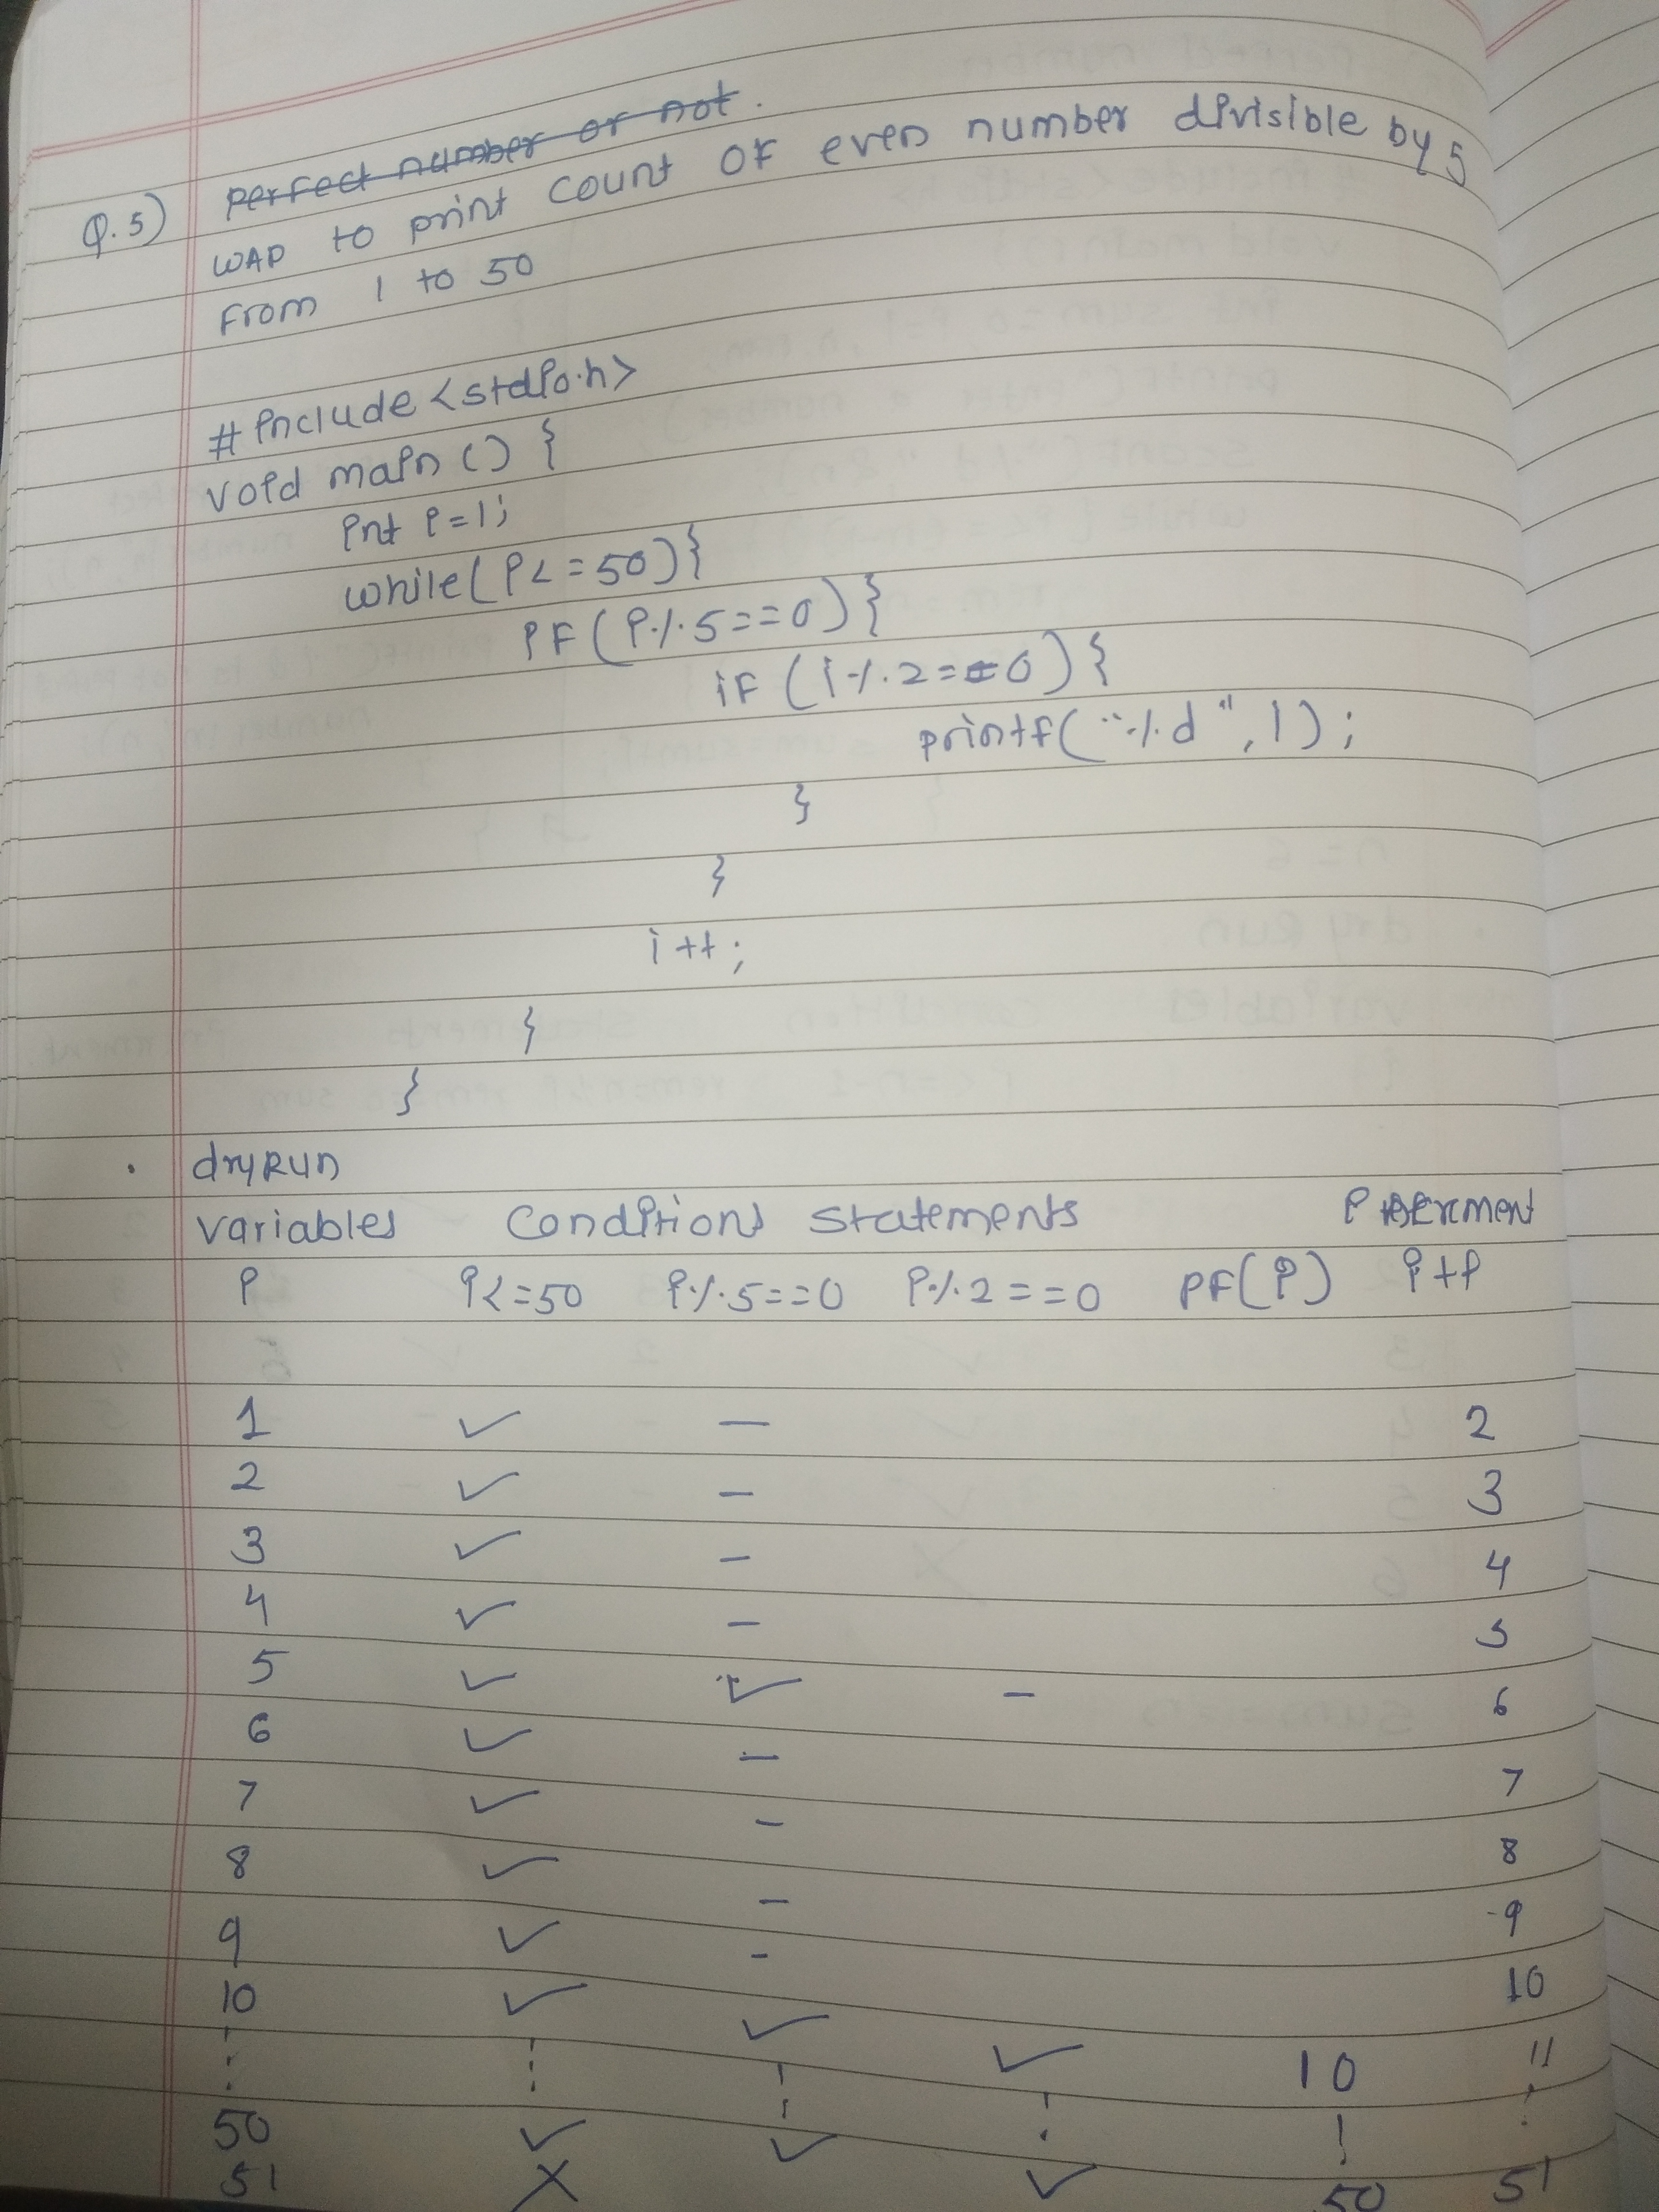 Q.5) perfect number or not.
WAP to print count OF even number divisible by 5
From 1 to 50
#include <stdio.h>
void main () {
int i=1;
while(i<=50){
iF(i%5==0){
iF(i%2==0){
printf("%d", i);
}
}
i++;
}
}
• dryRun
variables Conditions statements
i i<=50 i%5==0 i%2==0 PF(i) i++
1 ✓ — 2
2 ✓ — 3
3 ✓ — 4
4 ✓ — 5
5 ✓ ✓ — 6
6 ✓ — 7
7 ✓ — 8
8 ✓ — 9
9 ✓ - 10
10 ✓ ✓ ✓ 10 11
50 ✓ ✓ ✓ 50 51
51 X